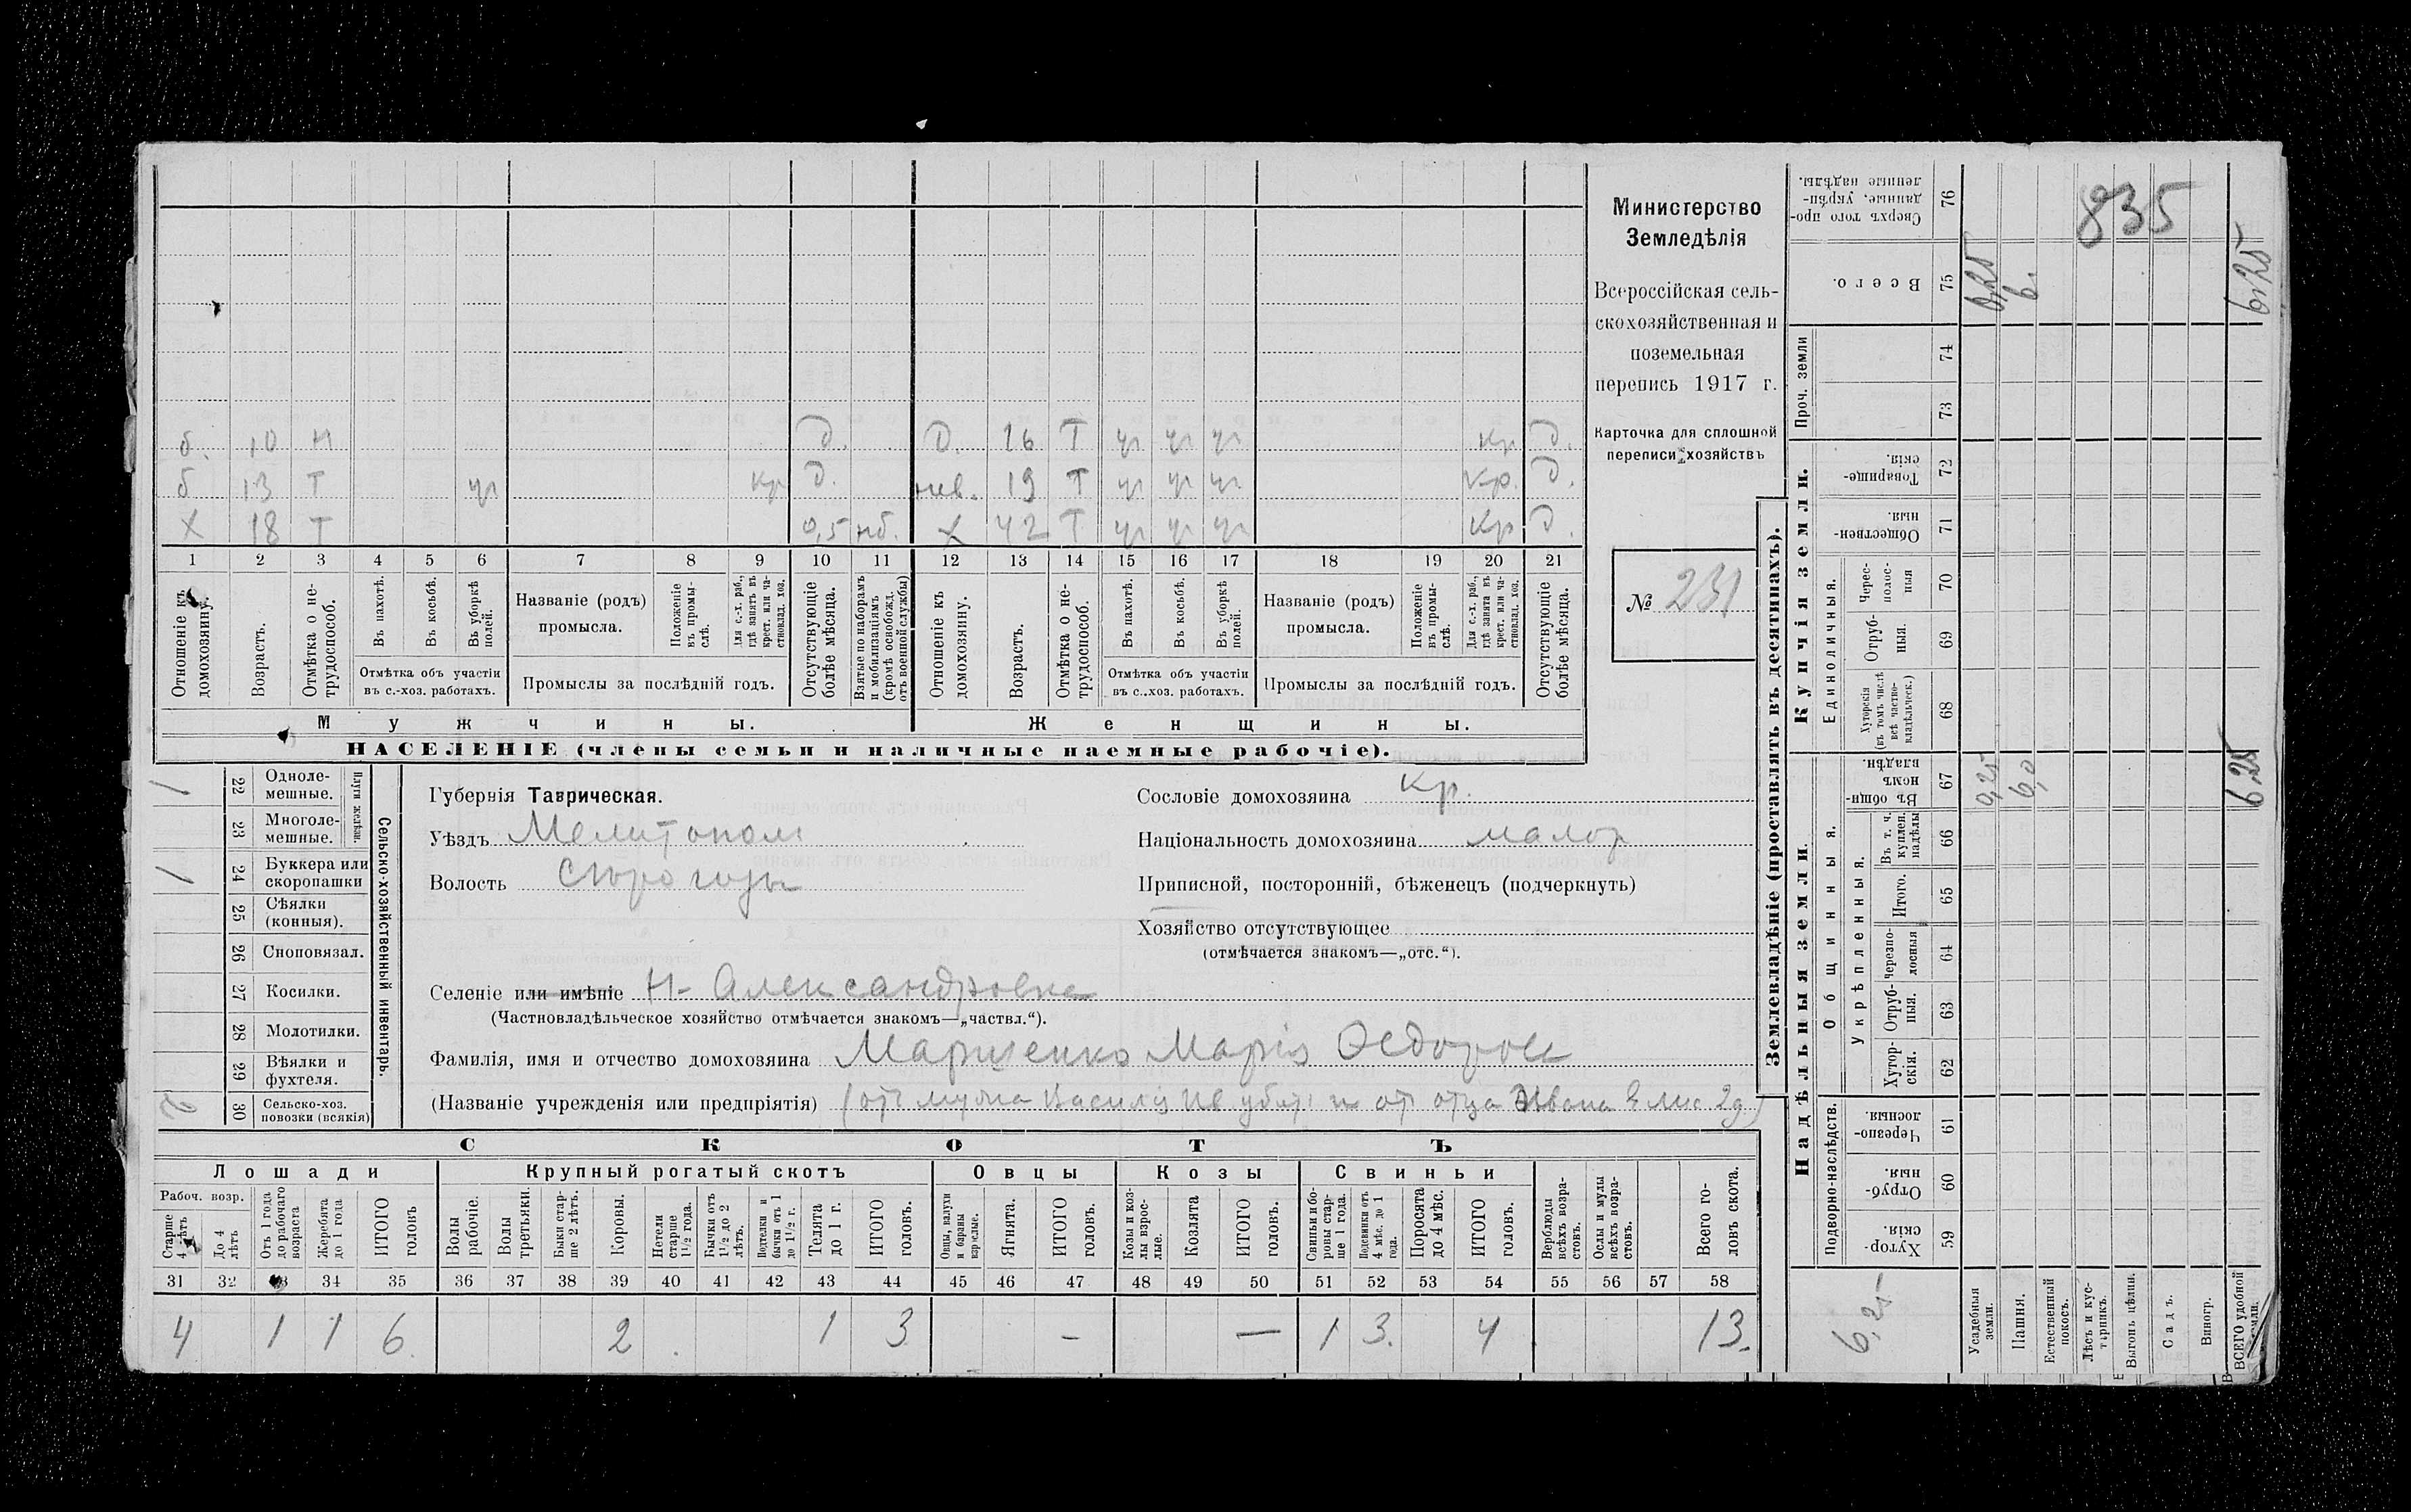 б. 10 н д. D. 16 Т чл чл чл кр д.
б 13 Т чл кр д. нев. 19 Т чл чл чл кр. д.
х 18 Т 0,5 нб. х 42 Т чл чл чл кр д.
1 2 3 4 5 6 7 8 9 10 11 12 13 14 15 16 17 18 19 20 21
Отношеніе къ домохозяину.
Возрастъ.
Отмѣтка о не-трудоспособ.
Въ пахотѣ.
Въ косьбѣ.
Въ уборкѣ полей.
Отмѣтка объ участіи
въ с.-хоз. работахъ.
Названіе (родъ)
промысла.
Положеніе въ промы-слѣ.
Для с.-х. раб., гдѣ занятъ въ крест. или ча-стновлад. хоз.
Промыслы за послѣдній годъ.
Отсутствующіе болѣе мѣсяца.
Взятые по наборамъ и мобилизаціямъ (кромѣ освобожд. отъ военной службы)
Отношеніе къ домохозяину.
Возрастъ.
Отмѣтка о не-трудоспособ.
Въ пахотѣ.
Въ косьбѣ.
Въ уборкѣ полей.
Отмѣтка объ участіи
въ с.-хоз. работахъ.
Названіе (родъ)
промысла.
Положеніе въ промы-слѣ.
Для с.-х. раб., гдѣ занята въ крест. или ча-стновлад. хоз.
Промыслы за послѣдній годъ.
Отсутствующіе болѣе мѣсяца.
Мужчины.
Женщины.
НАСЕЛЕНІЕ (члены семьи и наличные наемные рабочіе).
Министерство
Земледѣлія
Всероссійская сель-
скохозяйственная и
поземельная
перепись 1917 г.
Карточка для сплошной
переписи хозяйствъ
№ 231
Плуги желѣзн.
1 22 Одноле-мешные.
23 Многоле-мешные.
1 24 Буккера или скоропашки
25 Сѣялки (конныя).
26 Сноповязал.
27 Косилки.
28 Молотилки.
29 Вѣялки и фухтеля.
2 30 Сельско-хоз. повозки (всякія)
Сельско-хозяйственный инвентарь.
Губернія Таврическая.
Уѣздъ Мелитопол
Волость Сѣрогозы
Сословіе домохозяина кр.
Національность домохозяина малор
Приписной, посторонній, бѣженецъ (подчеркнуть)
Хозяйство отсутствующее
(отмѣчается знакомъ—„отс.“).
Селеніе или имѣніе Н- Александровка
(Частновладѣльческое хозяйство отмѣчается знакомъ—„частвл.“).
Фамилія, имя и отчество домохозяина Марченко Марія Федоров
(Названіе учрежденія или предпріятія) (отъ мужа Василія Ив убит и от отца Ивана Елис 2д)
СКОТЪ
Лошади
Рабоч. возр.
Старше 4 лѣтъ
До 4 лѣтъ
Отъ 1 года до рабочаго возраста
Жеребята до 1 года
ИТОГО головъ
Крупный рогатый скотъ
Волы рабочіе.
Волы третьяки.
Быки стар-ше 2 лѣтъ.
Коровы.
Нетели старше 1½ года.
Бычки отъ 1½ до 2 лѣтъ.
Подтелки и бычки отъ 1 до 1½ г.
Телята до 1 г.
ИТОГО головъ.
Овцы
Овцы, валухи и бараны взрослые.
Ягнята.
ИТОГО головъ.
Козы
Козы и коз-лы взрос-лые.
Козлята
ИТОГО головъ.
Свиньи
Свиньи и бо-ровы стар-ше 1 года.
Подсвинки отъ 4 мѣс. до 1 года.
Поросята до 4 мѣс.
ИТОГО головъ.
Верблюды всѣхъ возра-стовъ.
Ослы и мулы всѣхъ возра-стовъ.
Всего го-ловъ скота.
31 32 33 34 35 36 37 38 39 40 41 42 43 44 45 46 47 48 49 50 51 52 53 54 55 56 57 58
4 1 1 6. 2 1 3 - — 1 3. 4 13.
Землевладѣніе (проставлять въ десятинахъ).
Купчія земли.
Надѣльныя земли.
Сверхъ того про-данные, укрѣп-ленные надѣлы. 76
835
Всего. 75 0,25 6. 6,25
Проч. земли 74 73
Товарище-скія. 72
Обществен-ныя. 71
Единоличныя.
Черес-полос-ныя 70
Отруб-ныя. 69
Хуторскія (въ томъ числѣ всѣ частно-владѣльческ.) 68
Общинныя.
Въ общин-номъ владѣн. 67 0,25 6,0 6,25
Укрѣпленныя.
Въ т. ч. куплен. надѣлы 66
Итого. 65
Черезпо-лосныя 64
Отруб-ныя. 63
Хутор-скія. 62
Подворно-наслѣдств.
Черезпо-лосныя. 61
Отруб-ныя. 60
Хутор-скія. 59
6,25
Усадебныя земли.
Пашня.
Естественный покосъ.
Лѣсъ и кус-тарникъ.
Выгонъ цѣлин.
Садъ.
Виногр.
ВСЕГО удобной земли.